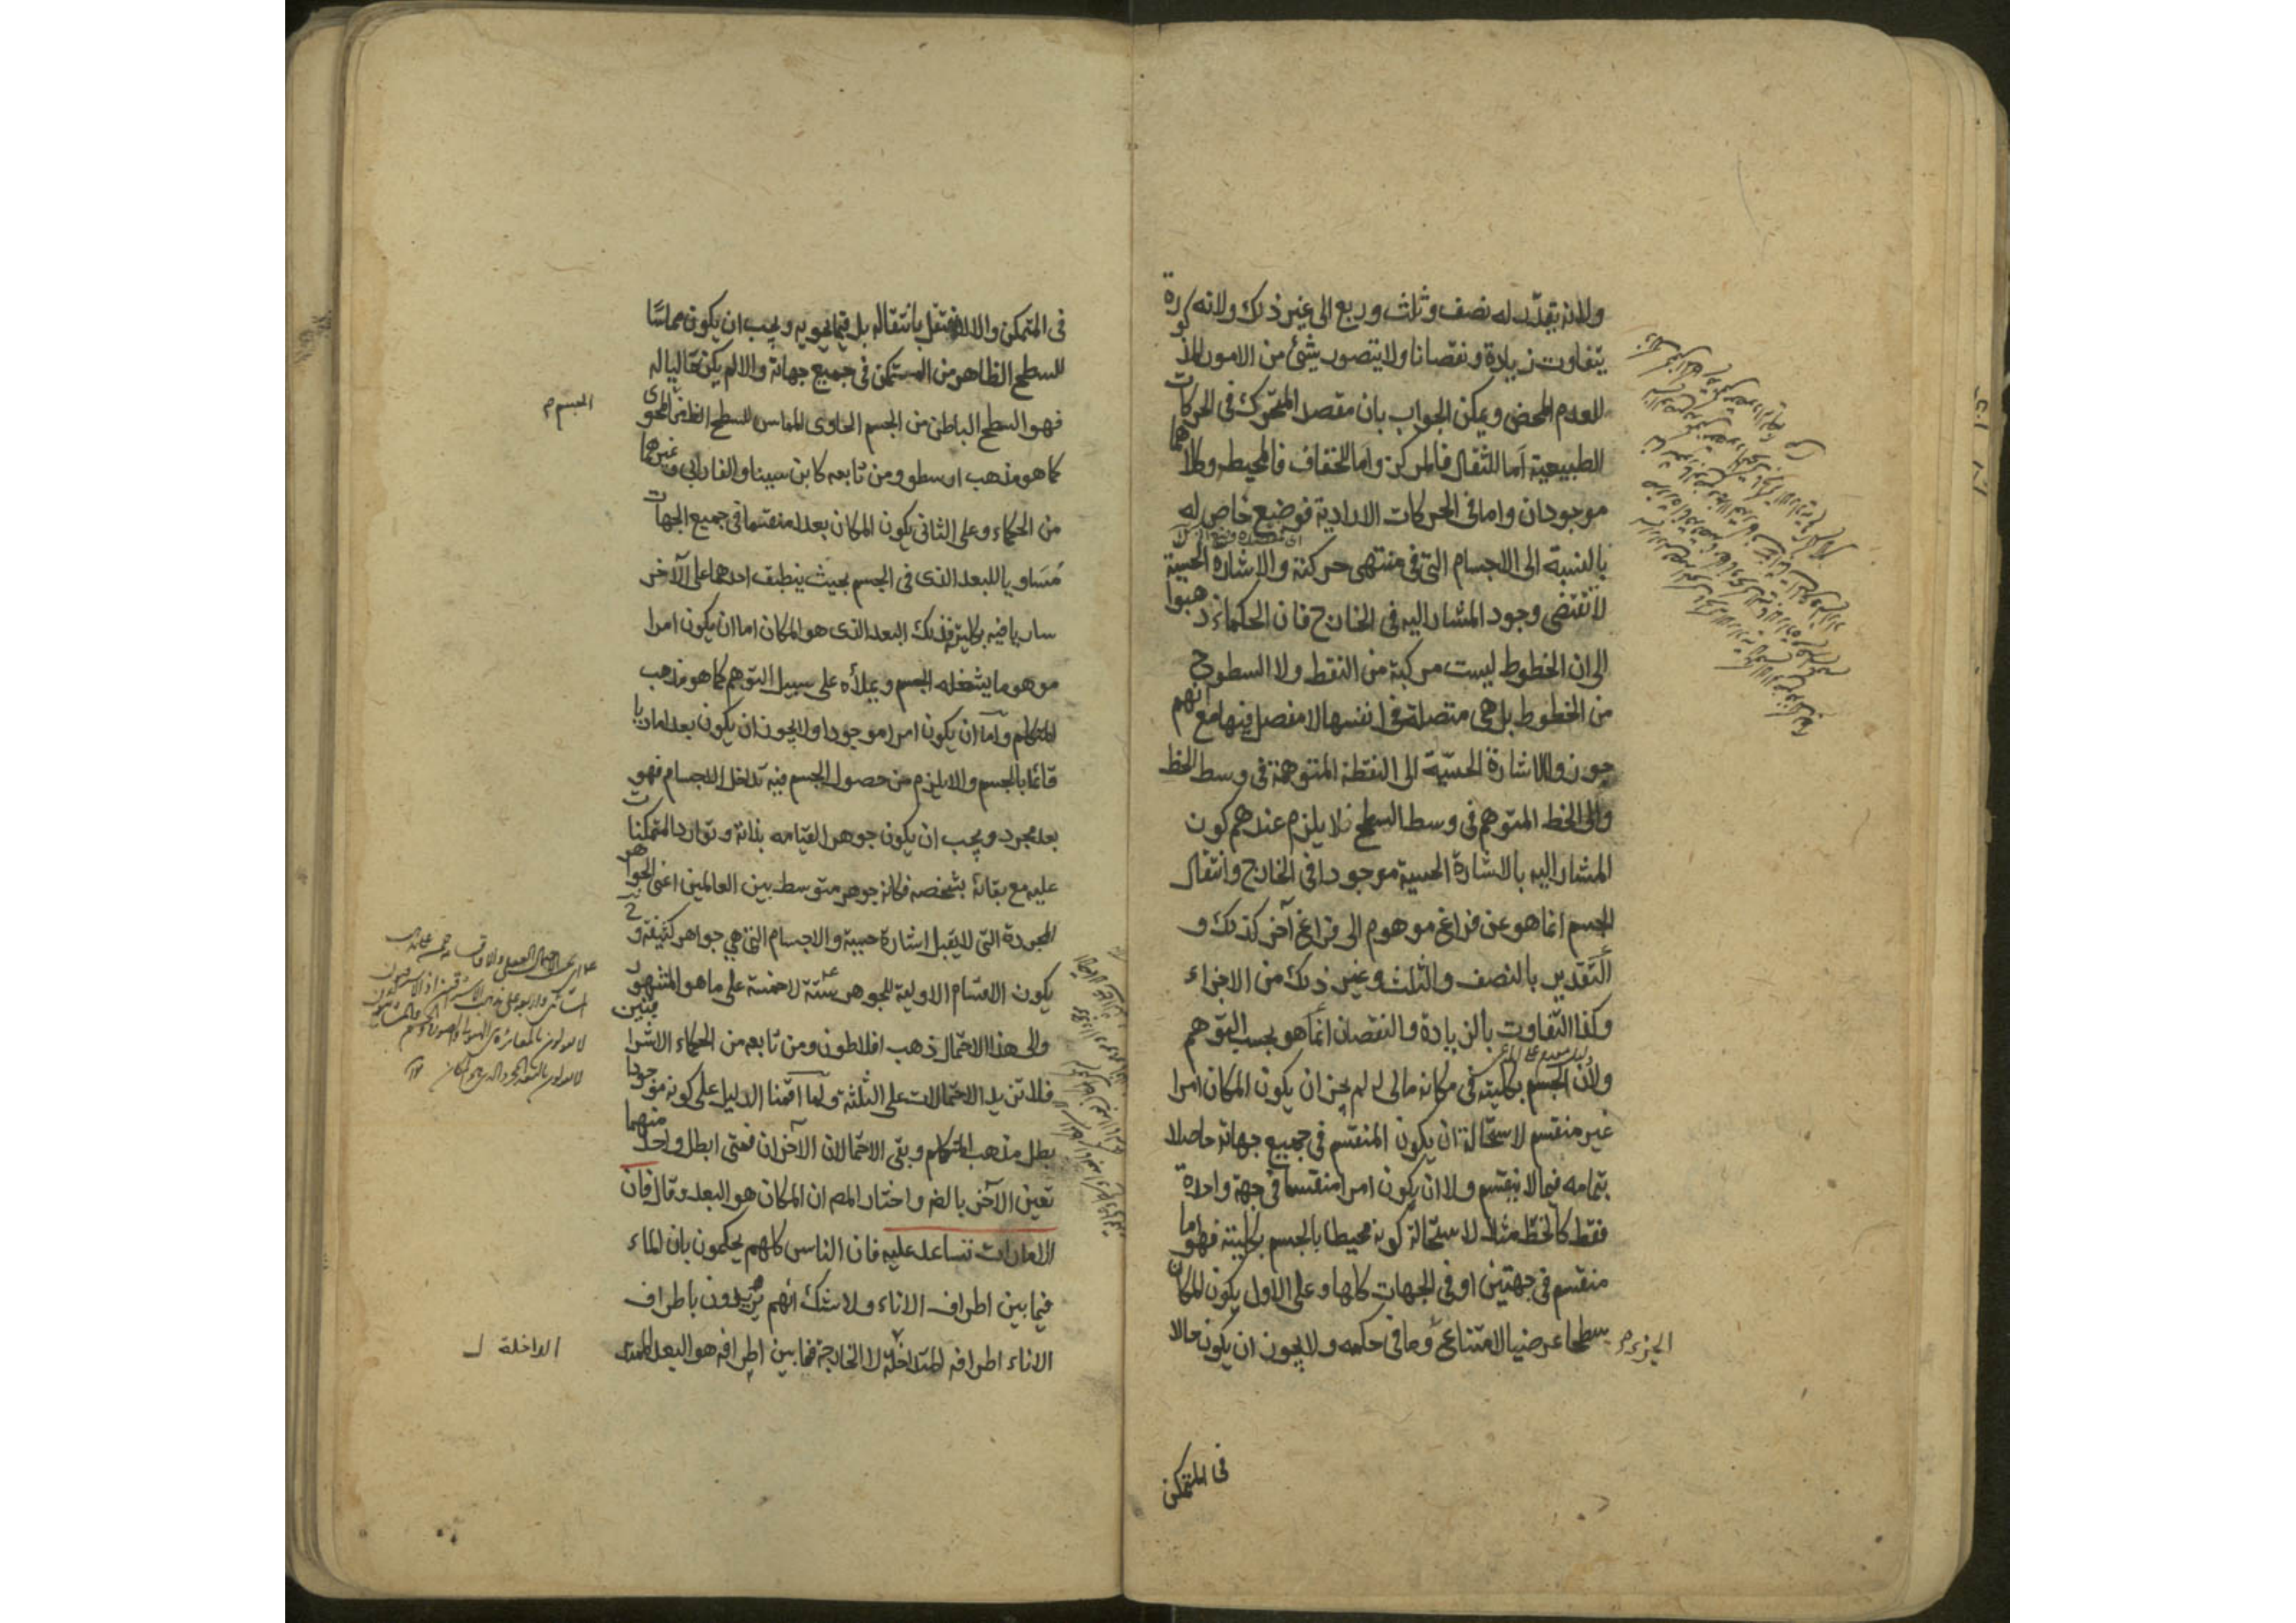 ولانه يقدّر له نصف وثلث وربع الى غير ذلك ولانه
يتفاوت زيادة ونقصانا ولا يتصور شئ من الامور المذكورة
للعدم المحض ويمكن الجواب بان مقصد المتحرك فى الحركات
الطبيعية اما للثقال فالمركز واما للخفاف فالمحيط وكلاهما
موجودان واما فى الحركات الارادية فوضع خاص له
بالنسبة الى الاجسام التى فى منتهى حركته والاشارة الحسية
لا تقتضى وجود المشار اليه فى الخارج فان الحكماء ذهبوا
الى ان الخطوط ليست مركبة من النقط ولا السطوح
من الخطوط بل هى متصلة فى انفسها لا مفصل فيها مع انهم
جوزوا الاشارة الحسّية الى النقطة المتوهمة فى وسط الخط
والى الخط المتوهم فى وسط السطح فلا يلزم عندهم كون
المشار اليه بالاشارة الحسية موجودا فى الخارج وانتقال
الجسم انما هو عن فراغ موهوم الى فراغ آخر كذلك و
التقدير بالنصف والثلث وغير ذلك من الاجزاء
وكذا التفاوت بالزيادة والنقصان انما هو بحسب التوهم
ولان الجسم بكليته فى مكانه مالئ له لم يجز ان يكون المكان امرا
غير منقسم لاستحالة ان يكون المنقسم فى جميع جهاته حاصلا
بتمامه فيما لا ينقسم ولا ان يكون امرا منقسما فى جهة واحدة
فقط كالخط مثلا لاستحالة كونه محيطا بالجسم بكليته فهو اما
منقسم فى جهتين او فى الجهات كلها وعلى الاول يكون المكان
سطحا عرضيا لامتناع الجزء وما فى حكمه ولا يجوز ان يكون حالا
فى المتمكن
فى المتمكن والا لانتقل بانتقاله بل فيما يحويه ويجب ان يكون مماسّا
للسطح الظاهر من المتمكن فى جميع جهاته والا لم يكن مالئا له
فهو السطح الباطن من الجسم الحاوى المماس للسطح الظاهر من الجسم المحوى
كما هو مذهب ارسطو ومن تابعه كابن سينا والفارابى وغيرهما
من الحكماء وعلى الثانى يكون المكان بعدا منقسما فى جميع الجهات
مساويا للبعد الذى فى الجسم بحيث ينطبق احدهما على الآخر
ساريا فيه بكليته فذلك البعد الذى هو المكان اما ان يكون امرا
موهوما يشغله الجسم ويملأه على سبيل التوهم كما هو مذهب
المتكلم واما ان يكون امرا موجودا ولا يجوز ان يكون بعدا ماديا
قائما بالجسم والا يلزم من حصول الجسم فيه تداخل الاجسام فهو
بعد مجرد ويجب ان يكون جوهرا لقيامه بذاته وتوارد المتمكنات
عليه مع بقائه بشخصه فكانه جوهر متوسط بين العالمين اعنى الجواهر
المجردة التى لا يقبل اشارة حسية والاجسام التى هى جواهر كثيفة وح
يكون الاقسام الاولية للجوهر ستة لا خمسة على ما هو المشهور
والى هذا الاحتمال ذهب افلاطون ومن تابعه من الحكماء الاشراقيين
فلا تزيد الاحتمالات على الثلثة ولما اقمنا الدليل على كونه موجودا
بطل مذهب المتكلم وبقى الاحتمالان الآخران فمتى ابطل واحد منهما
تعين الآخر بالضر واختار المص ان المكان هو البعد وقال فان
الامارات تساعد عليه فان الناس كلهم يحكمون بان الماء
فيما بين اطراف الاناء ولا شك انهم يريدون باطراف
الاناء اطرافه الداخلة لا الخارجة فما بين اطرافه هو البعد الممتد